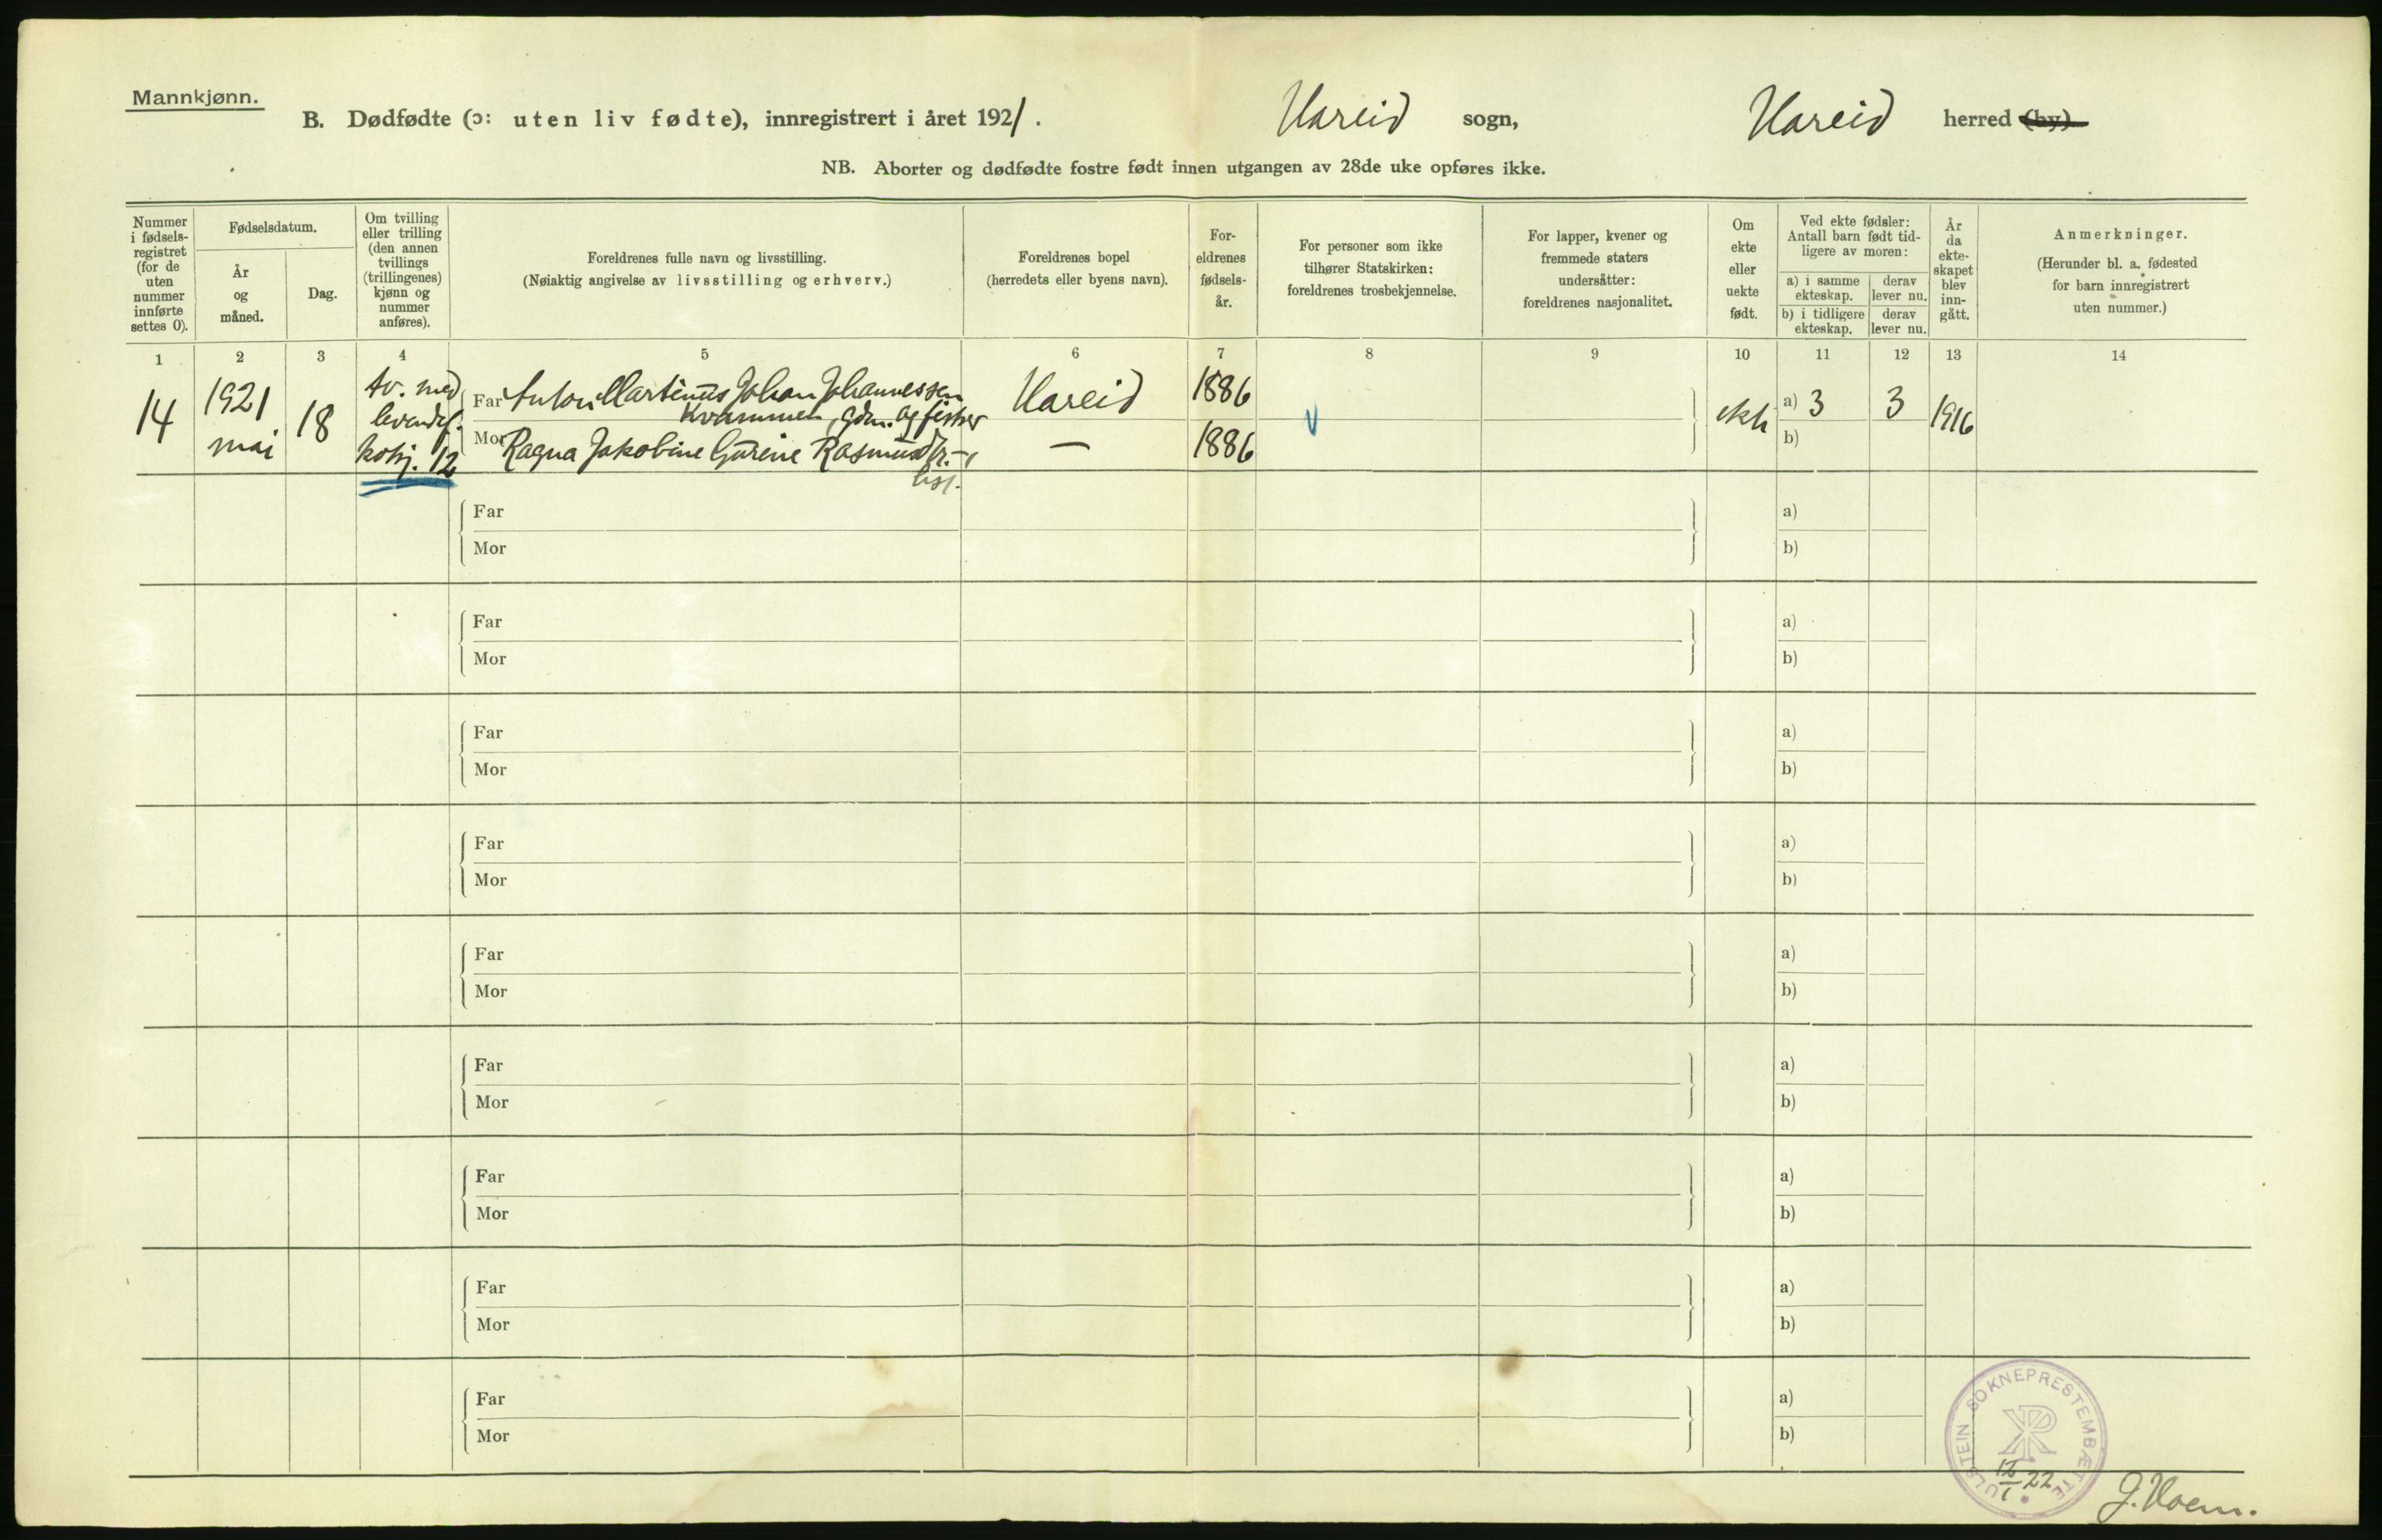 Mannkjønn.
B. Dødfødte (ɔ: uten liv fødte), innregistrert i året 1921. Hareid sogn, Hareid herred (by)
NB. Aborter og dødfødte fostre født innen utgangen av 28de uke opføres ikke.
Nummer i fødsels-registret (for de uten nummer innførte settes 0).
Fødselsdatum.
År og måned.
Dag.
Om tvilling eller trilling (den annen tvillings (trillingenes) kjønn og nummer anføres).
Foreldrenes fulle navn og livsstilling.
(Nøiaktig angivelse av livsstilling og erhverv.)
Foreldrenes bopel
(herredets eller byens navn).
For-eldrenes fødsels-år.
For personer som ikke tilhører Statskirken: foreldrenes trosbekjennelse.
For lapper, kvener og fremmede staters undersåtter: foreldrenes nasjonalitet.
Om ekte eller uekte født.
Ved ekte fødsler: Antall barn født tid-ligere av moren:
a) i samme ekteskap. derav lever nu.
b) i tidligere ekteskap. derav lever nu.
År da ekte-skapet blev inn-gått.
Anmerkninger.
(Herunder bl. a. fødested for barn innregistrert uten nummer.)
1 2 3 4 5 6 7 8 9 10 11 12 13 14
14 1921 mai 18 tv. med levendef. 12
Far Anton Martinus Johan Johannessen Hareid 1886 a) 3 3 1916
Kvammen, gdm. og fisker
Mor Ragna Jakobine Gurine — 1886 b)
Far a)
Mor b)
Far a)
Mor b)
Far a)
Mor b)
Far a)
Mor b)
Far a)
Mor b)
Far a)
Mor b)
Far a)
Mor b)
Far a)
Mor b)
Far a)
Mor b)
ULSTEIN SOKNEPRESTEMBÆTTE
12/1 22
J. Hoem.